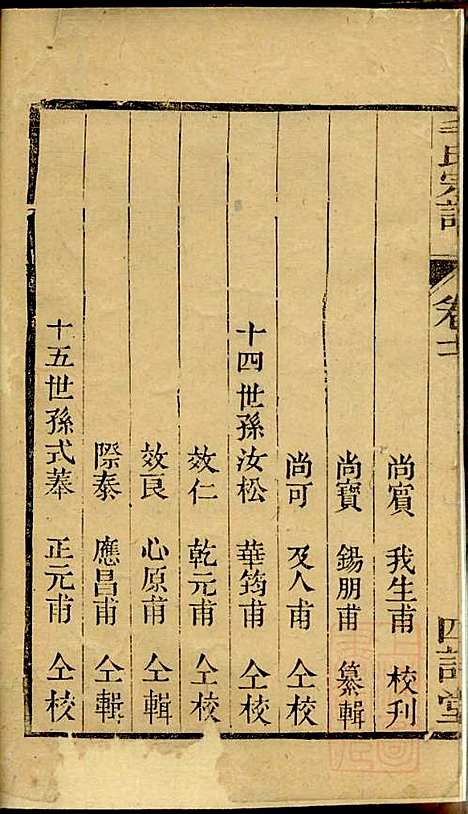 氏宗譜
卷十一
四詩堂
尚賔 我生甫 校刋
尚寶 錫朋甫 纂輯
尚可 及人甫 仝校
十四世孫汝松 華筠甫 仝校
效仁 乾元甫 仝校
效良 心原甫 仝輯
際泰 應昌甫 仝輯
十五世孫式蓁 正元甫 仝校